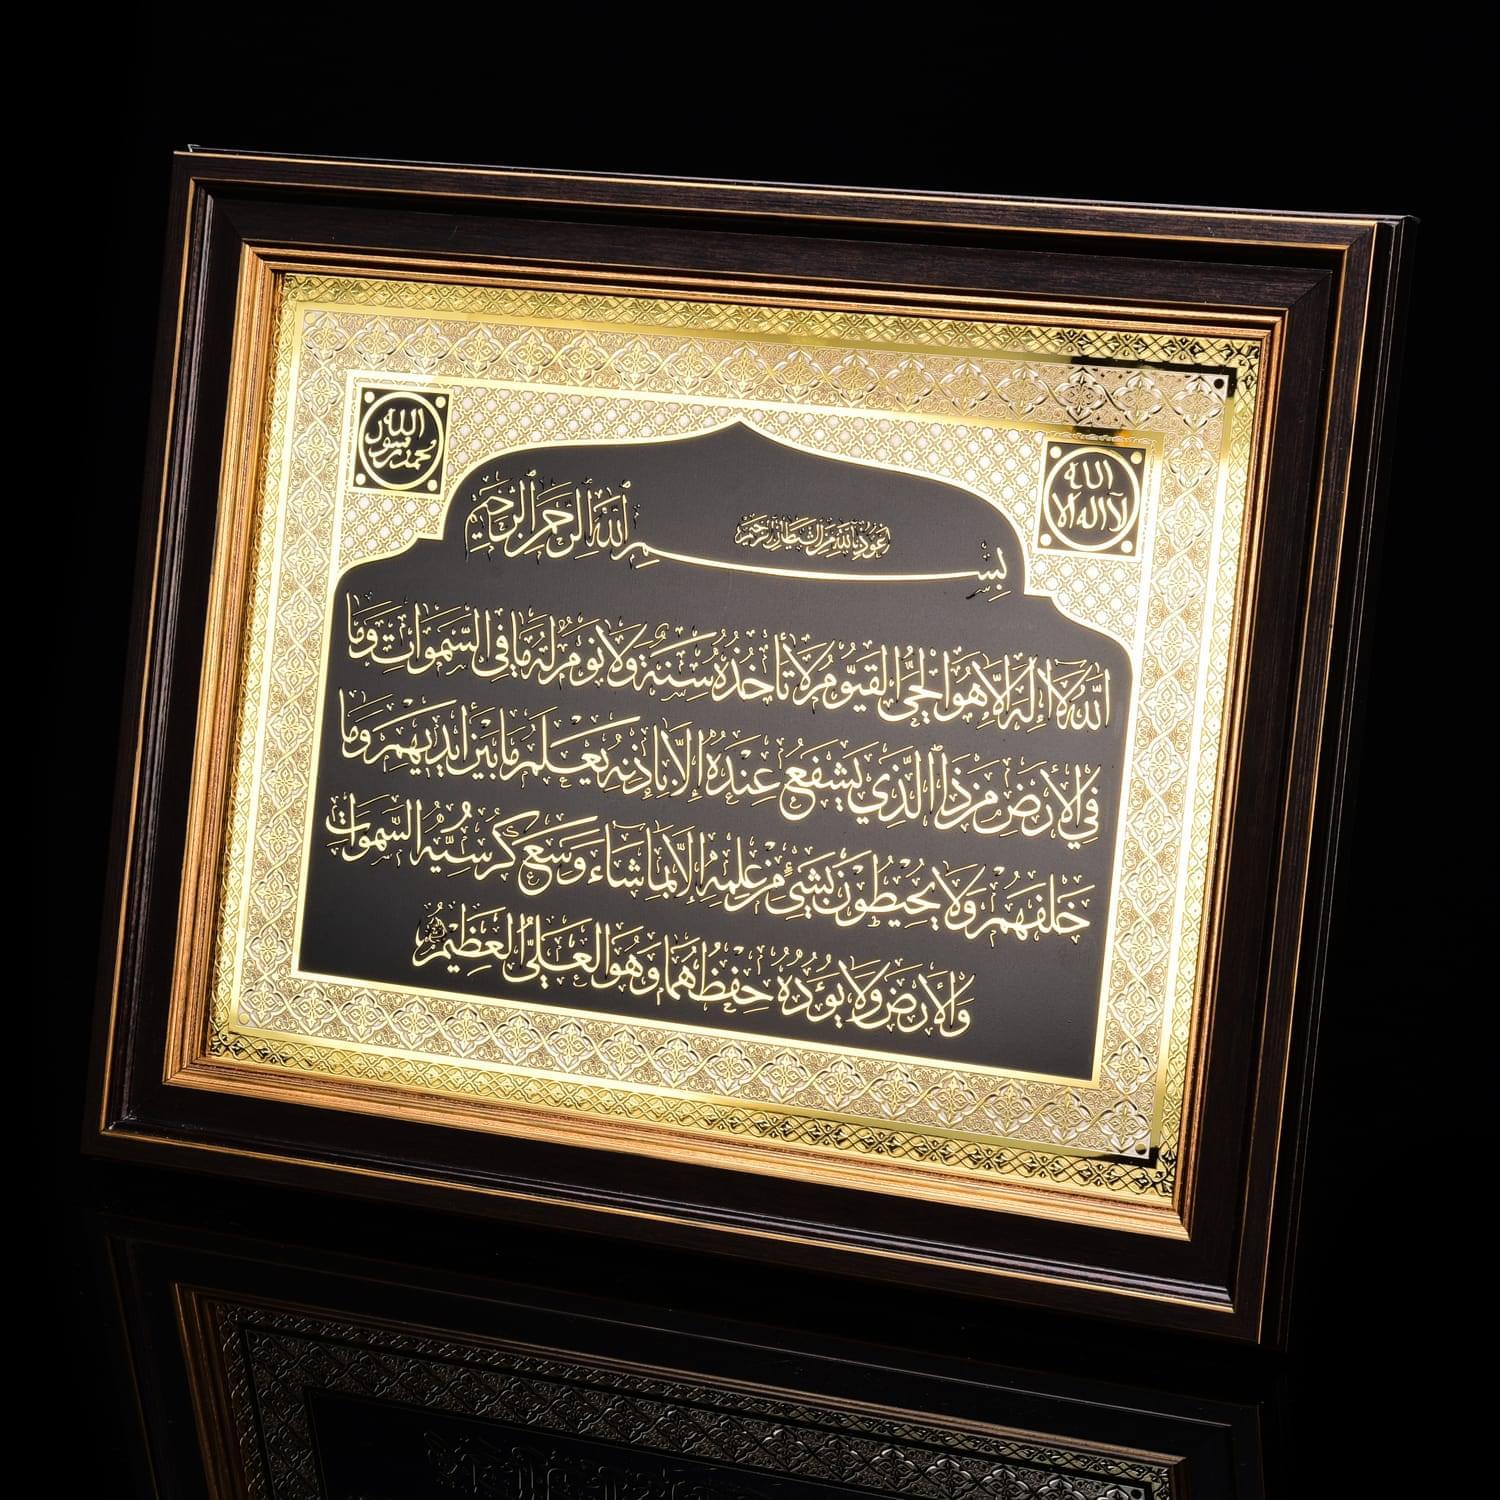 لا اله الا الله
محمد رسول الله
اعوذ بالله من الشيطان الرجيم
بِسْمِ ٱللَّهِ ٱلرَّحْمَنِ ٱلرَّحِيمِ
اَللّٰهُ لَآ اِلٰهَ اِلَّا هُوَ الْحَيُّ الْقَيُّومُ لَا تَأْخُذُهُ سِنَةٌ وَلَا نَوْمٌ لَهُ مَا فِي السَّمٰوَاتِ وَمَا
فِي الْأَرْضِ مَنْ ذَا الَّذِي يَشْفَعُ عِنْدَهُ اِلَّا بِاِذْنِهِ يَعْلَمُ مَا بَيْنَ اَيْدِيهِمْ وَمَا
خَلْفَهُمْ وَلَا يُحِيطُونَ بِشَيْءٍ مِنْ عِلْمِهِ اِلَّا بِمَا شَاءَ وَسِعَ كُرْسِيُّهُ السَّمٰوَاتِ
وَالْأَرْضَ وَلَا يَؤُدُهُ حِفْظُهُمَا وَهُوَ الْعَلِيُّ الْعَظِيمُ